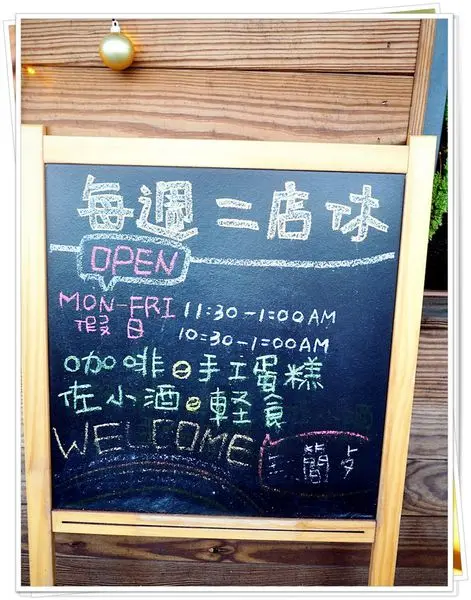 每週二店休
OPEN
MON-FRI 11:30-1:00AM
假日 10:30-1:00AM
咖啡手工蛋糕
佐小酒輕食
WELCOME